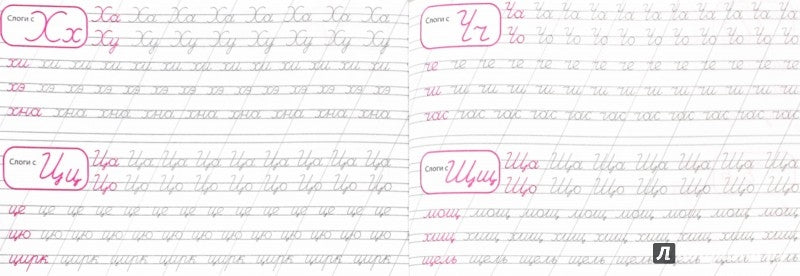 Слоги с Хх
Ха Ха Ха Ха Ха Ха Ха Ха
Ху Ху Ху Ху Ху Ху Ху Ху
хи хи хи хи хи хи хи хи хи хи хи
хэ хэ хэ хэ хэ хэ хэ хэ хэ хэ хэ
хна хна хна хна хна хна хна хна хна
Слоги с Цц
Ца Ца Ца Ца Ца Ца Ца Ца Ца
Цо Цо Цо Цо Цо Цо Цо Цо Цо
це це це це це це це це це це це це
цю цю цю цю цю цю цю цю цю цю
цирк цирк цирк цирк цирк цирк цирк цирк
Слоги с Чч
Ча Ча Ча Ча Ча Ча Ча Ча Ча Ча Ча
Чо Чо Чо Чо Чо Чо Чо Чо Чо Чо Чо
че че че че че че че че че че че че че че
чи чи чи чи чи чи чи чи чи чи чи чи чи чи
час час час час час час час час час час
Слоги с Щщ
Ща Ща Ща Ща Ща Ща Ща
Що Що Що Що Що Що Що
мощ мощ мощ мощ мощ мощ мощ мощ
хищ хищ хищ хищ хищ хищ хищ хищ хищ
щель щель щель щель щель щель щель
Л